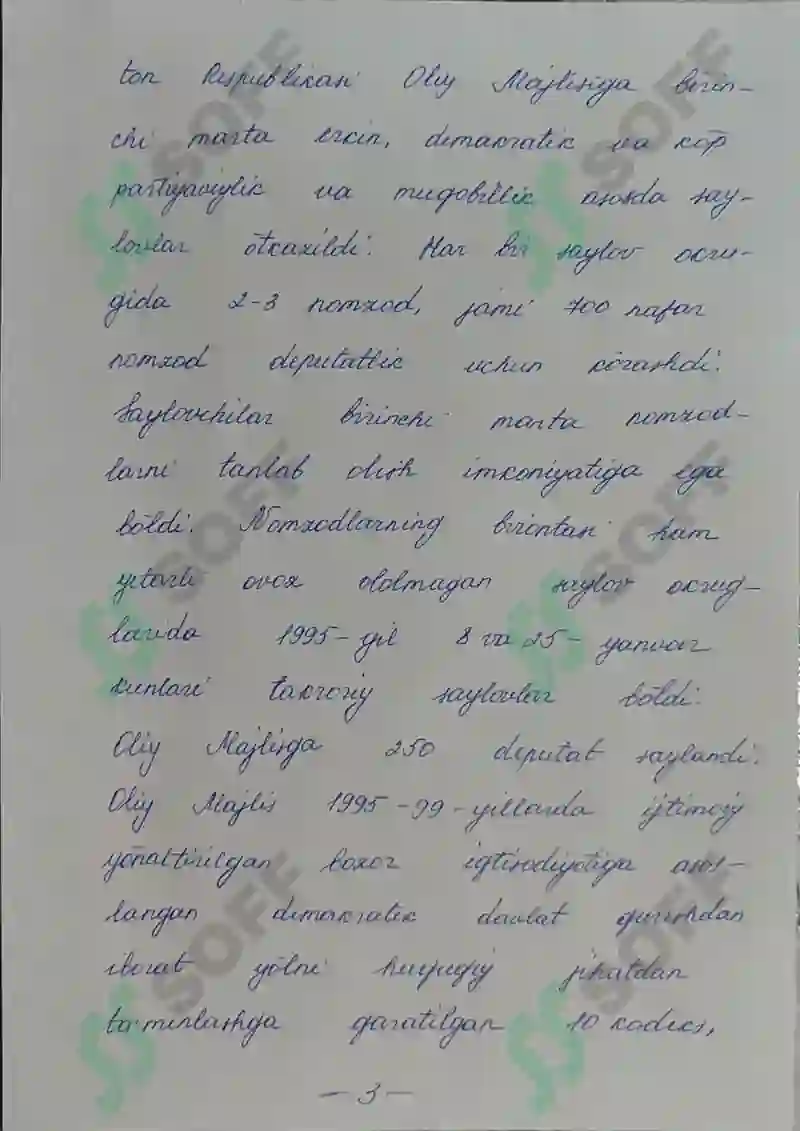 ton Respublikasi Oliy Majlisiga birin-
chi marta erkin, demakratik va kōp
partiyaviylik va muqobillik asosda say-
lovlar ōtkazildi. Har bir saylov okru-
gida 2-3 nomzod, jami 700 nafar
nomzod deputatlik uchun kōrashdi.
Saylovchilar birinchi marta nomzod-
larni tanlab olish imkoniyatiga ega
bōldi. Nomzodlarning birontasi ham
yetarli ovoz ololmagan saylov okrug-
larida 1995-yil 8 va 25- yanvar
kunlari takroriy saylovlar bōldi.
Oliy Majlisga 250 deputat saylandi.
Oliy Majlis 1995-99-yillarda ijtimoiy
yōnaltirilgan bozor iqtisodiyotiga asos-
langan demakratik davlat qurishdan
iborat yōlni huquqiy jihatdan
ta'minlashga qaratilgan 10 kodeks,
- 3 -
SOFF
SOFF
SOFF
SOFF
SOFF
SOFF